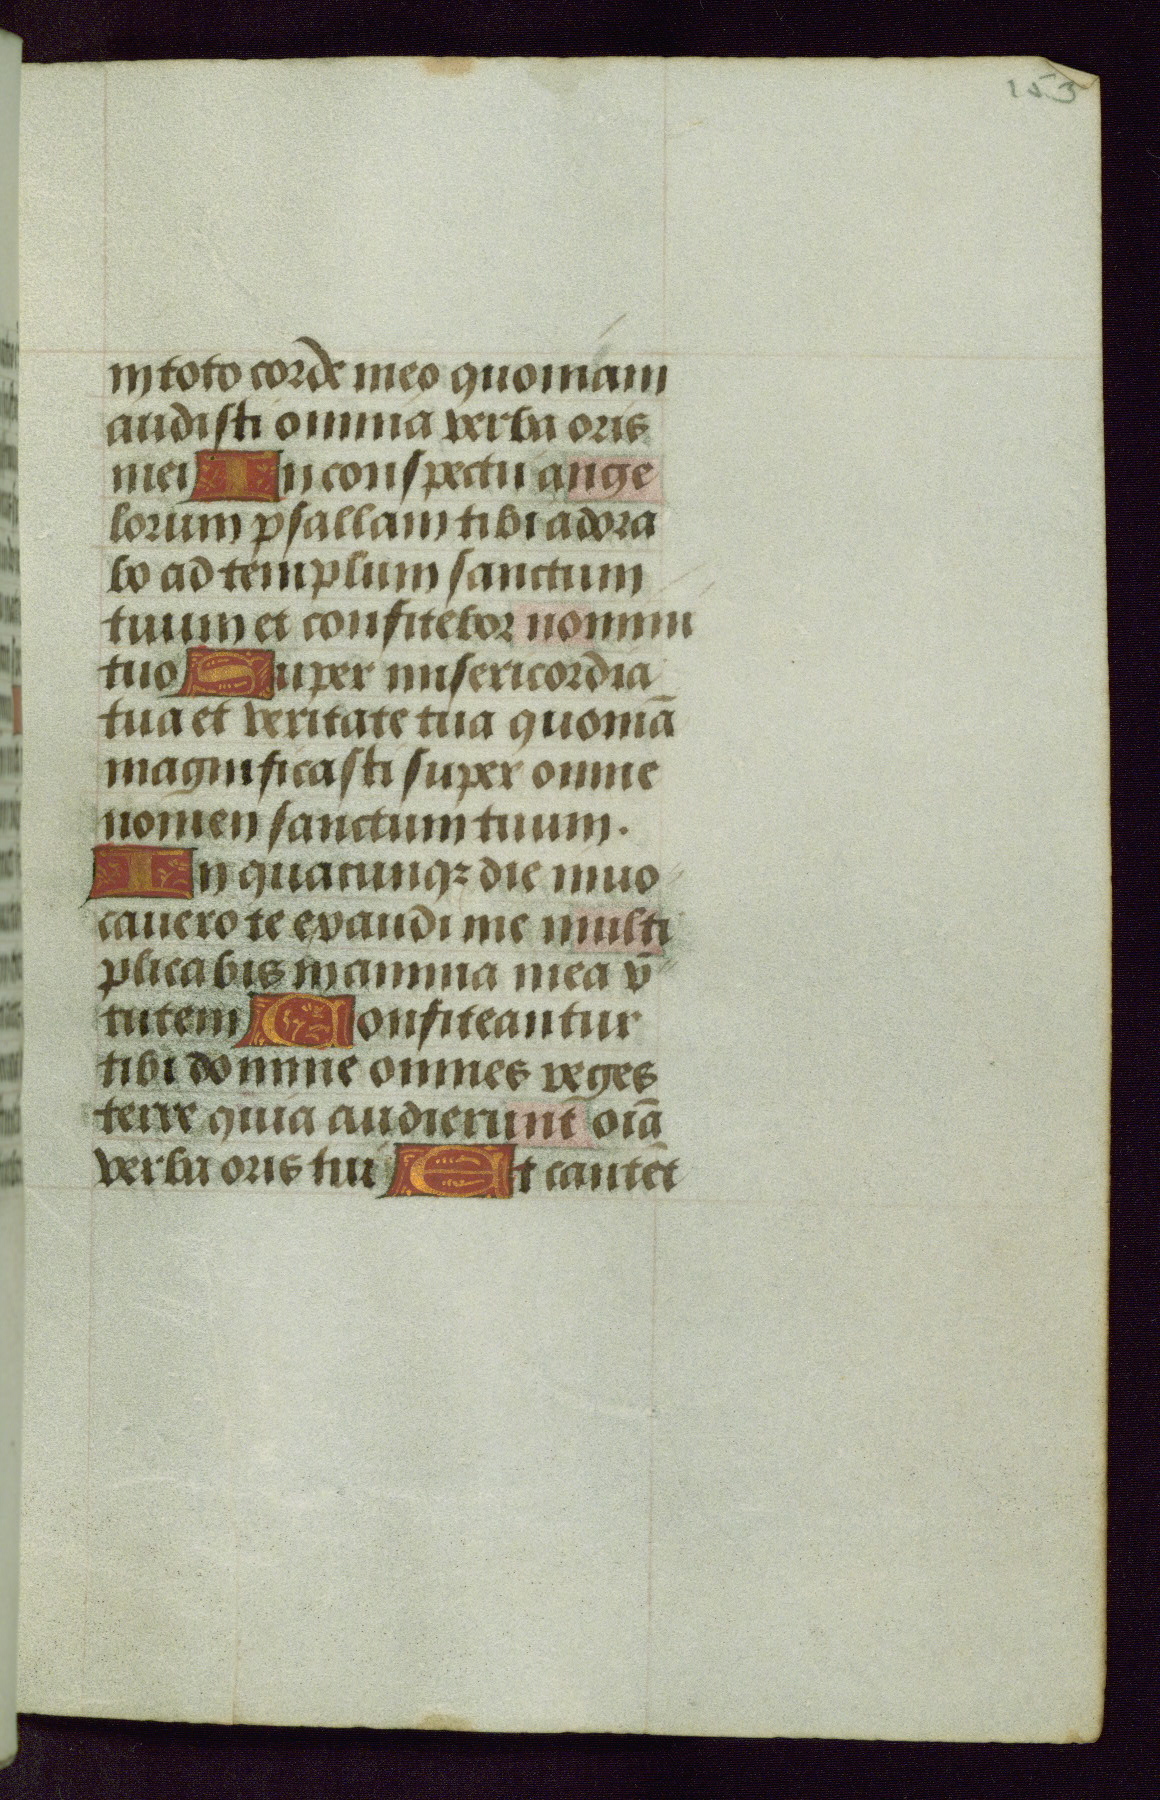 153
in toto corde meo quoniam
audisti omnia verba oris
mei In conspectu ange
lorum psallam tibi adora
bo ad templum sanctum
tuum et confitebor nomini
tuo Super misericordia
tua et veritate tua quoniā
magnificasti super omne
nomen sanctum tuum.
In quacunqꝫ die invo
cavero te exaudi me multi
plicabis in anima mea v̄
tutem Confiteantur
tibi domine omnes reges
terre quia audierunt oīa
verba oris tui Et cantēt